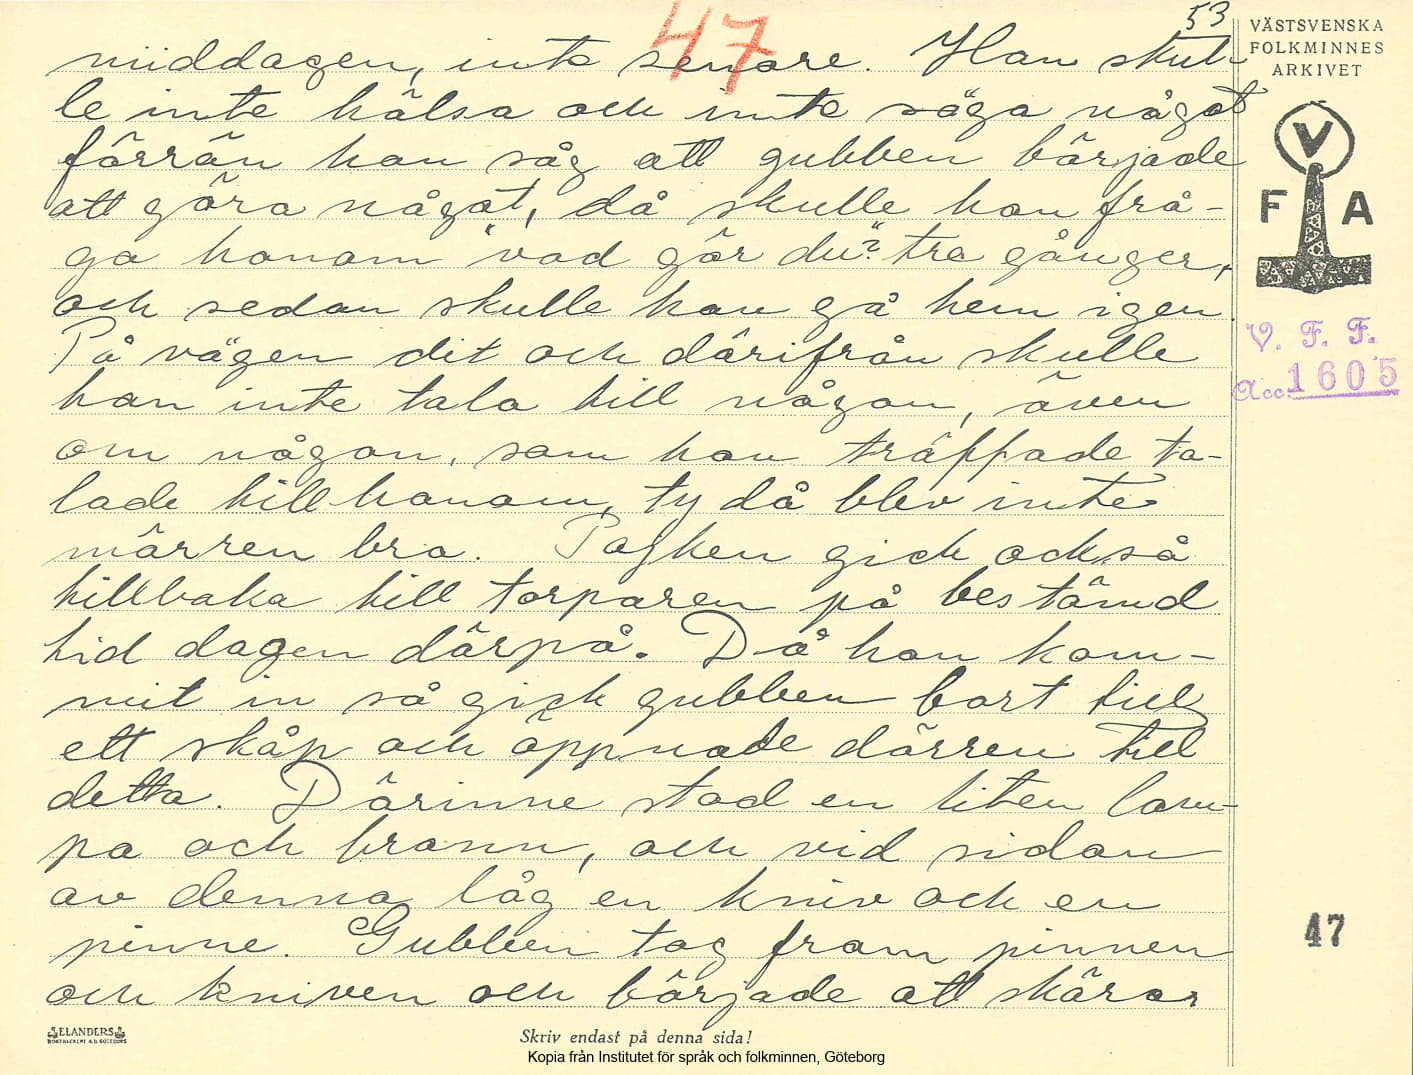 47
53
middagen, inte senare. Han skul-
le inte hälsa och inte säga något
förrän han såg att gubben började
att göra något, då skulle han frå-
ga honom "vad gör du?" tre gånger,
och sedan skulle han gå hem igen.
På vägen dit och därifrån skulle
han inte tala till någon, även
om någon, som han träffade ta-
lade till honom, ty då blev inte
märren bra. Pojken gick också
tillbaka till torparen på bestämd
tid dagen därpå. Då han kom-
mit in så gick gubben bort till
ett skåp och öppnade dörren till
detta. Därinne stod en liten lam-
pa och brann, och vid sidan
av denna låg en kniv och en
pinne. Gubben tog fram pinnen
och kniven och började att skära
VÄSTSVENSKA
FOLKMINNES
ARKIVET
V
F A
V. F. F.
Acc. 1605
47
ELANDERS
BOKTRYCKERI A.B. GÖTEBORG
Skriv endast på denna sida!
Kopia från Institutet för språk och folkminnen, Göteborg